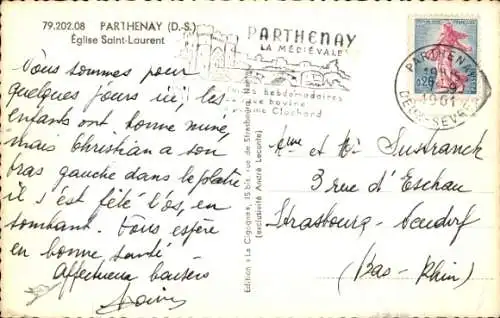 79.202.08 PARTHENAY (D.-S.)
Église Saint-Laurent
PARTHENAY
LA MÉDIÉVALE
hebdomadaires
bovine
Clochard
PARTHENAY
1961
DEUX-SEVRES
Vous sommes pour
quelques jours ici, les
enfants ont bonne mine,
mais Christian a son
bras gauche dans le plâtre
il s'est fêlé l'os, en
tombant. Vous espère
en bonne santé
Affectueux baisers
Edition "La Cigogne", 15 bis, rue de Strasbourg,
(exclusivité André Leconte)
Mme et Mr
3 rue d'Eschau
Strasbourg - Neudorf
(Bas-Rhin)